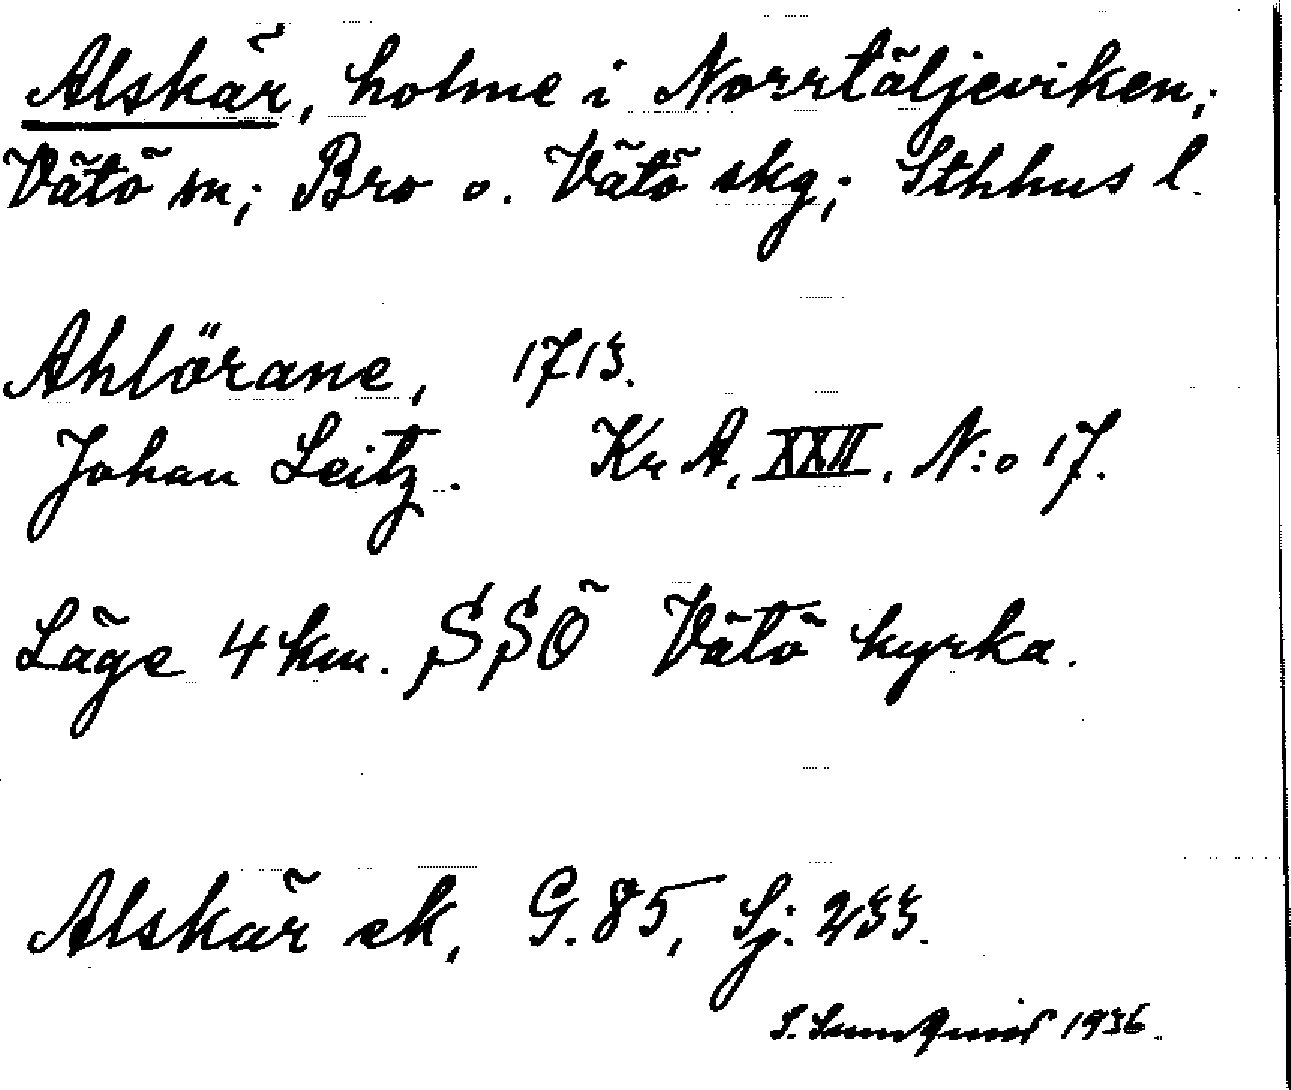 Alskär, holme i Norrtäljeviken;
Vätö sn; Bro o. Vätö skg; Sthhus l.
Ahlörane, 1713.
Johan Leitz. Kr A, XXII. N:o 17.
Läge 4 km. SSÖ Vätö kyrka.
Alskär ek, G. 85, Sj: 233.
S. 1936.